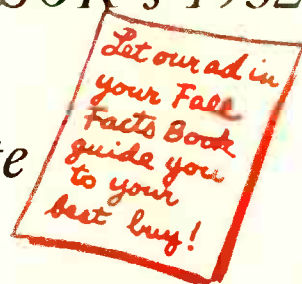 Let our ad in
your Fall
Facts Book
guide you
to your
best buy!